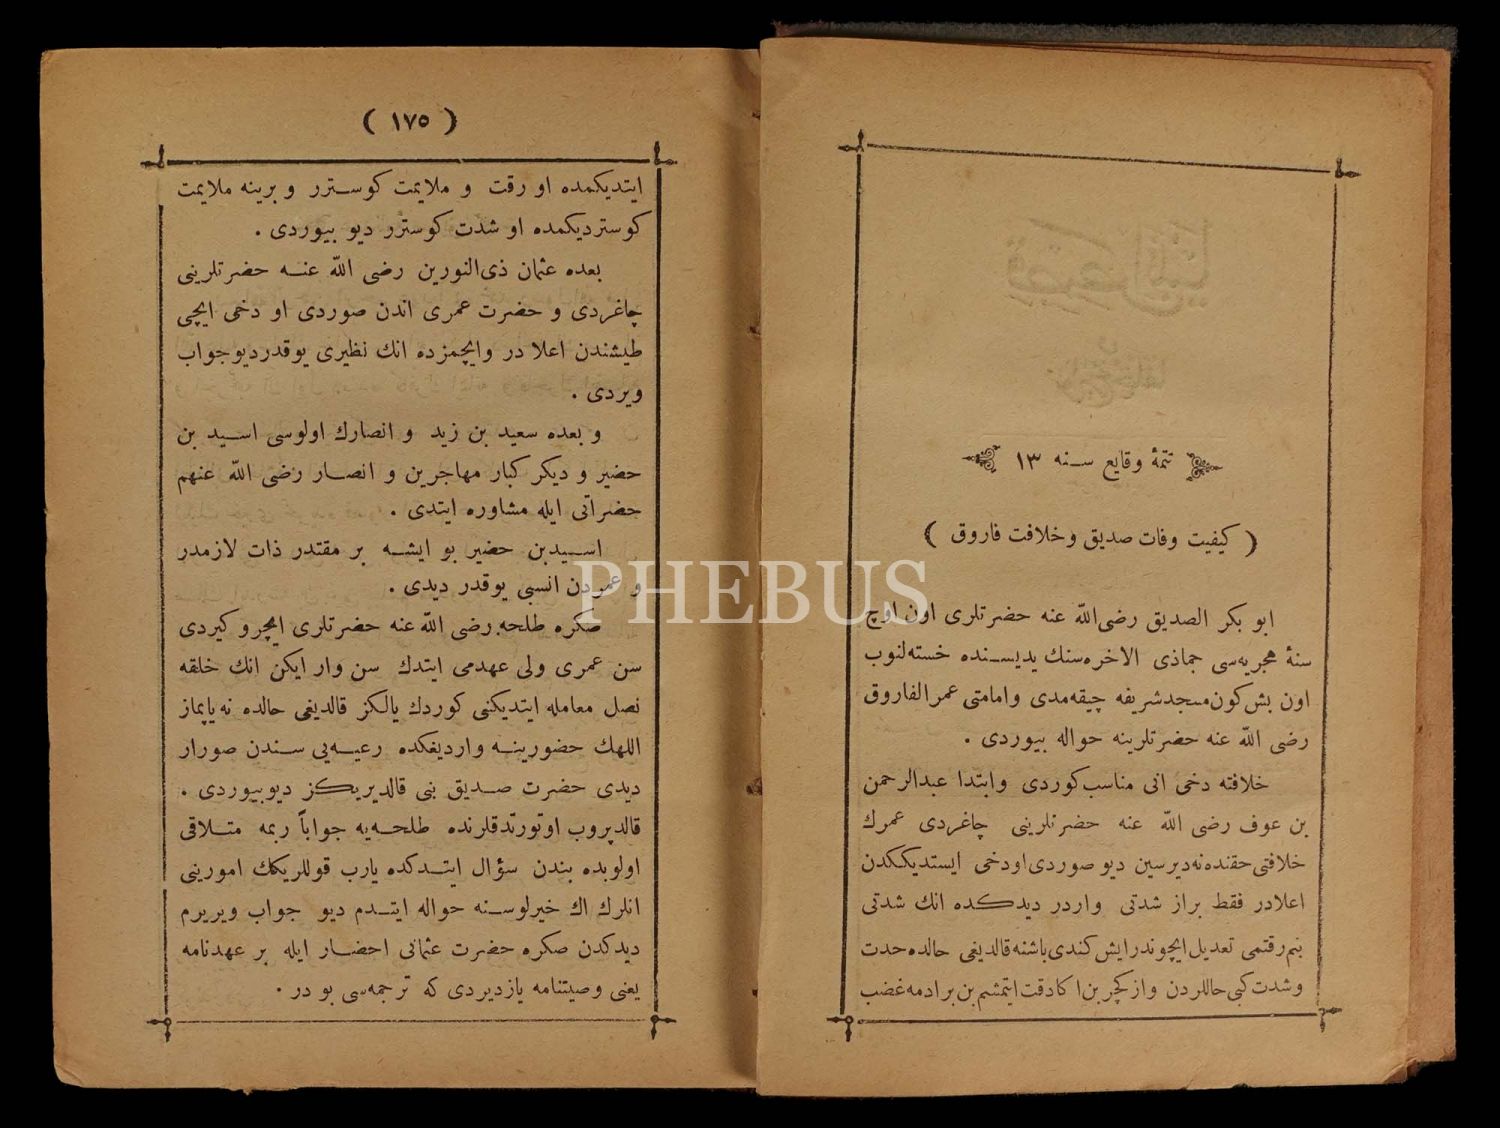 تتمۀ وقایع سنه ١٣
( كیفیت وفات صدیق وخلافت فاروق )
ابو بكر الصدیق رضی‌الله عنه حضرتلری اون اوچ
سنۀ هجریه‌سی جماذی الاخره‌سنك یدیسنده خسته‌لنوب
اون بش كون مسجد شریفه چیقه‌مدی وامامتی عمر الفاروق
رضی الله عنه حضرتلرینه حواله بیوردی .
خلافته دخی انی مناسب كوردی وابتدا عبدالرحمن
بن عوف رضی الله عنه حضرتلرینی چاغردی عمرك
خلافتی حقنده نه دیرسین دیو صوردی او دخی ایستدیككدن
اعلادر فقط براز شدتی واردر دیدكده انك شدتی
بنم رقتمی تعدیل ایچوندر ایش كندی باشنه قالدیغی حالده حدت
وشدت كبی حاللردن وازكچر بن اكا دقت ایتمشم بن بر ادمه غضب
( ١٧٥ )
ایتدیكمده او رقت و ملایمت كوسترر و برینه ملایمت
كوستردیكمده او شدت كوسترر دیو بیوردی .
بعده عثمان ذی‌النورین رضی الله عنه حضرتلرینی
چاغردی و حضرت عمری اندن صوردی او دخی ایچی
طیشندن اعلا در وایچمزده انك نظیری یوقدر دیو جواب
ویردی .
و بعده سعید بن زید و انصارك اولوسی اسید بن
حضیر و دیكر كبار مهاجرین و انصار رضی الله عنهم
حضراتی ایله مشاوره ایتدی .
اسید بن حضیر بو ایشه بر مقتدر ذات لازمدر
و عمردن انسبی یوقدر دیدی .
صكره طلحه رضی الله عنه حضرتلری ایچرو كیردی
سن عمری ولی عهدمی ایتدك سن وار ایكن انك خلقه
نصل معامله ایتدیكنی كوردك یالكز قالدیغی حالده نه یاپماز
اللهك حضورینه واردیغكده رعیه‌یی سندن صورار
دیدی حضرت صدیق بنی قالدیریكز دیو بیوردی .
قالدیروب اوتورتدقلرنده طلحه‌یه جواباً ربمه متلاقی
اولوبده بندن سؤال ایتدكده یارب قوللریكك امورینی
انلرك اك خیرلوسنه حواله ایتدم دیو جواب ویریرم
دیدكدن صكره حضرت عثمانی احضار ایله بر عهدنامه
یعنی وصیتنامه یازدیردی كه ترجمه‌سی بو در .
PHEBUS